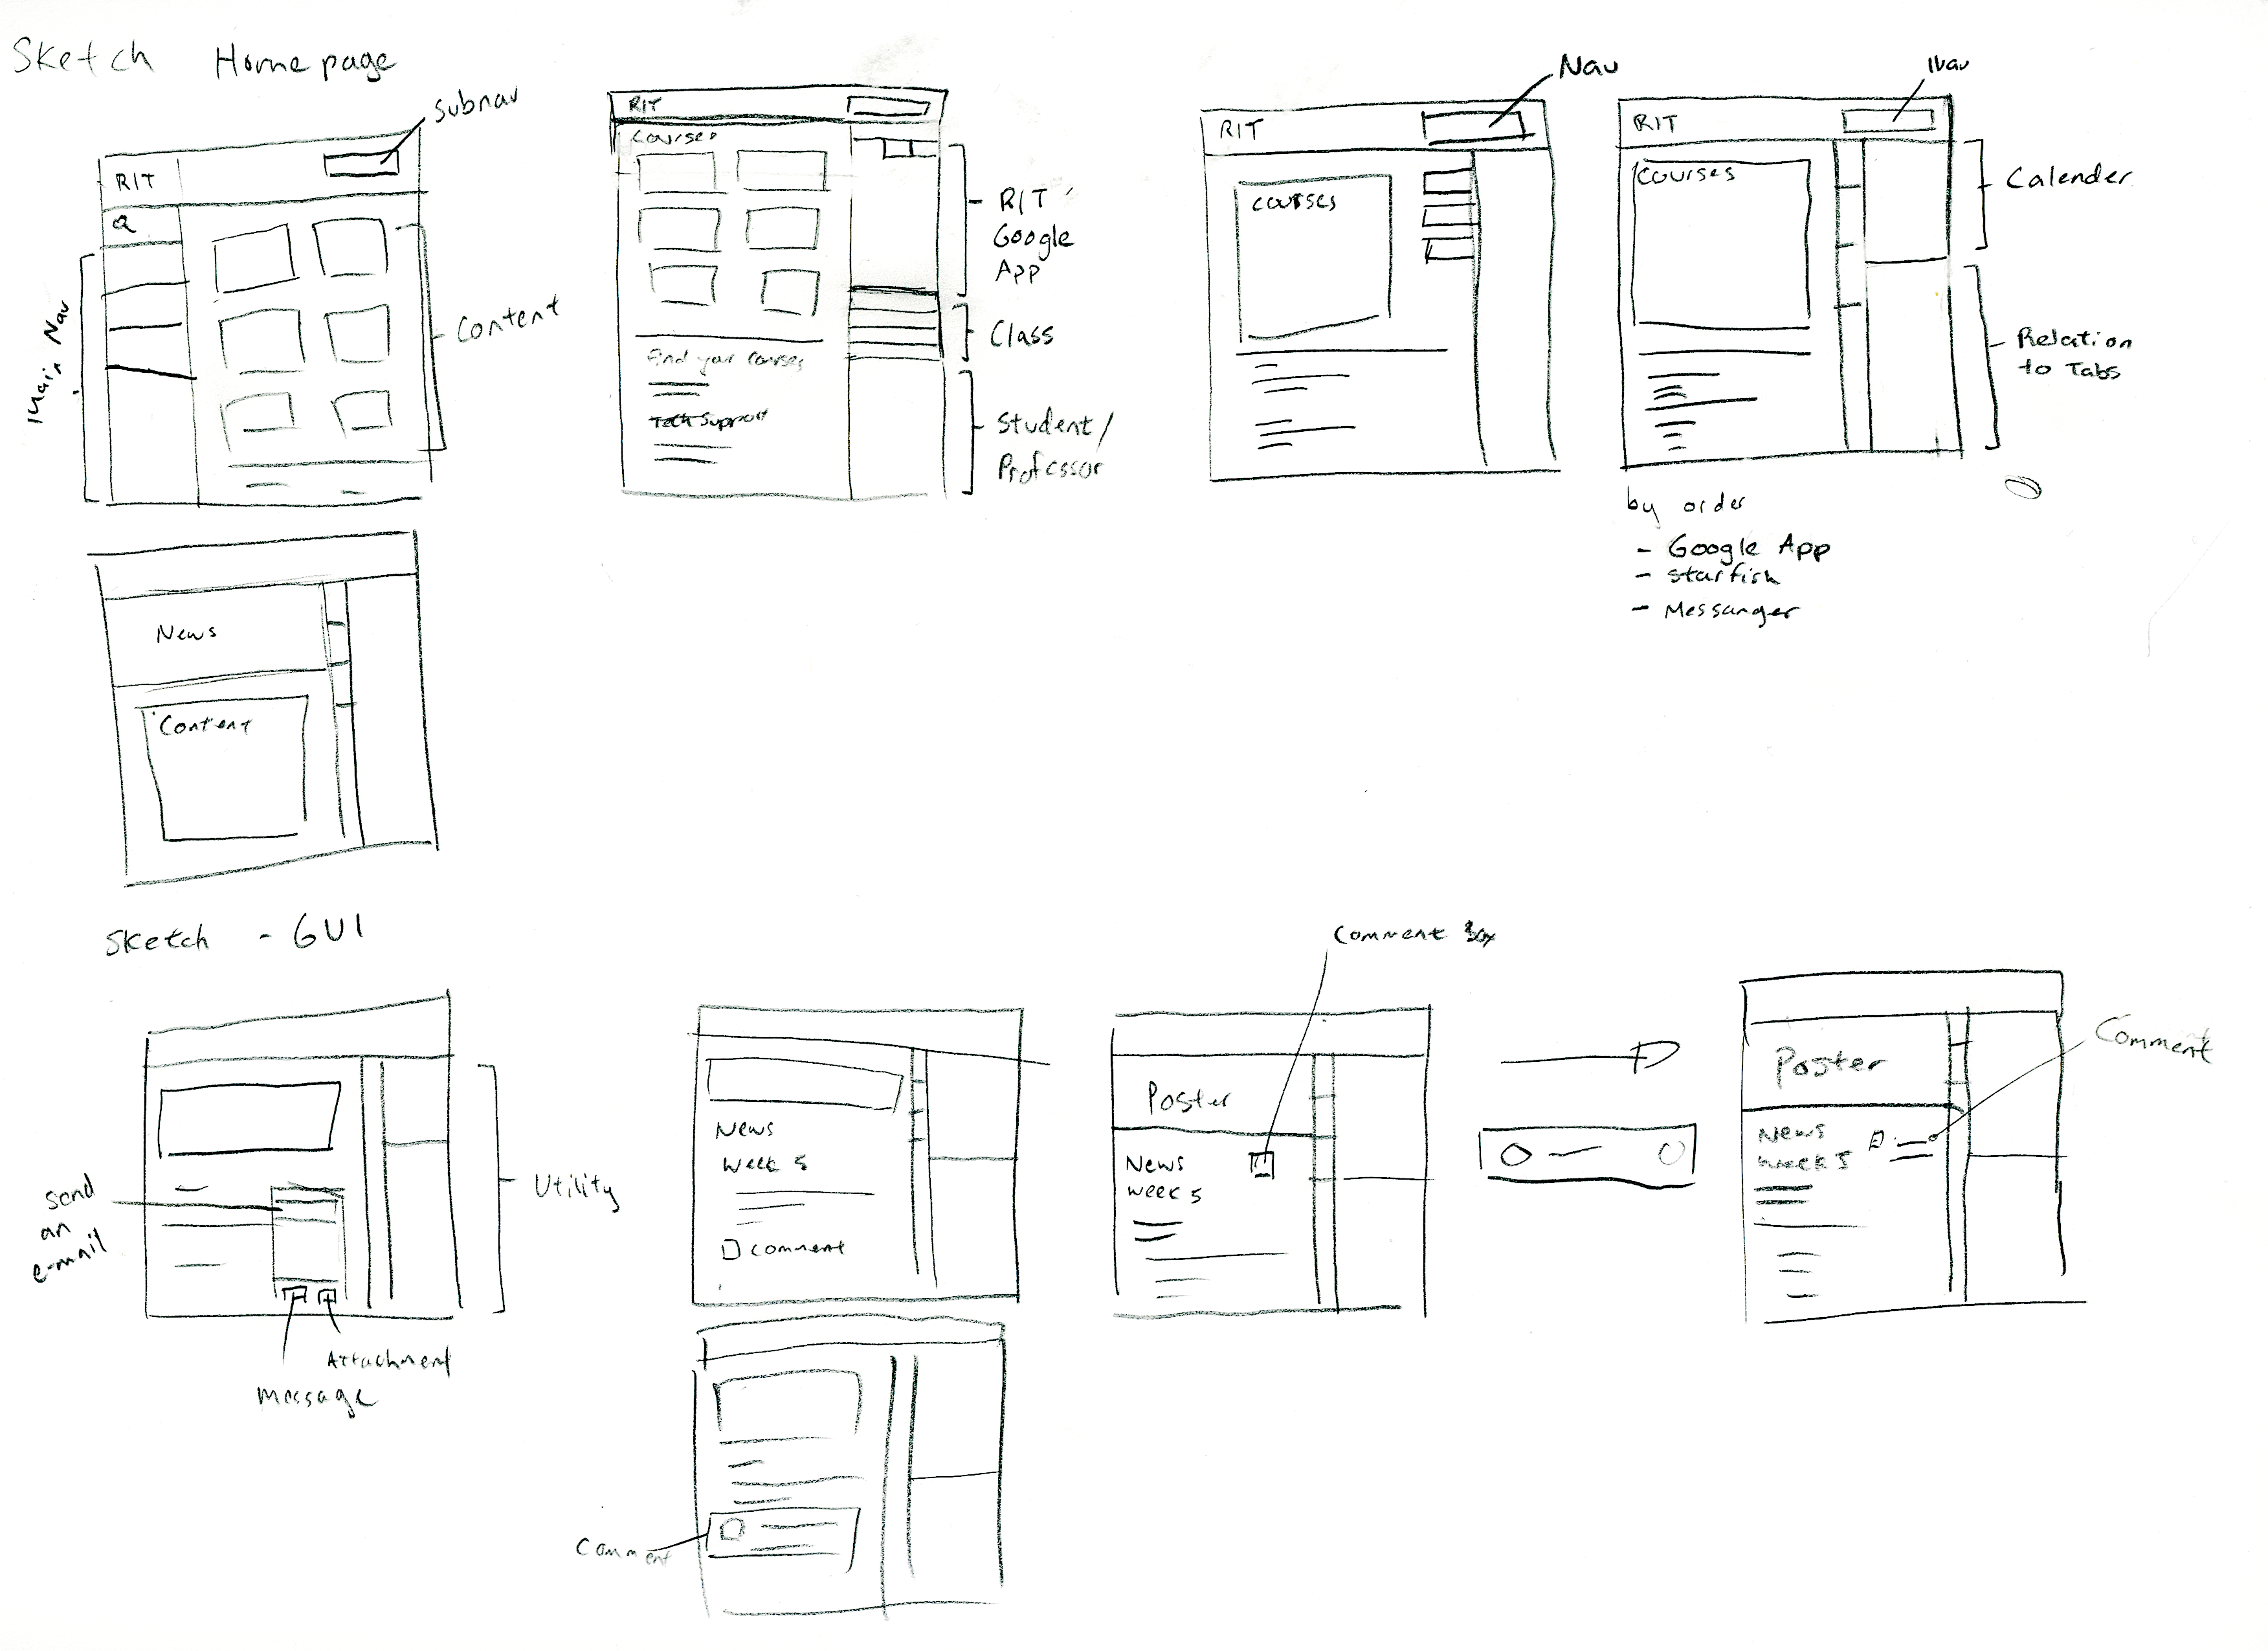 Sketch Homepage
subnav
RIT
Q
Main Nav
Content
RIT
Courses
Find your courses
Tech Support
RIT
Google
App
Class
Student/
Professor
Nav
RIT
courses
Nav
RIT
courses
Calender
Relation
to Tabs
by order
- Google App
- starfish
- Messanger
News
Content
Sketch - GUI
Send
an
e-mail
Utility
Attachment
Message
News
Week 5
comment
Comment
Comment Box
Poster
News
week 5
Poster
News
week 5
Comment